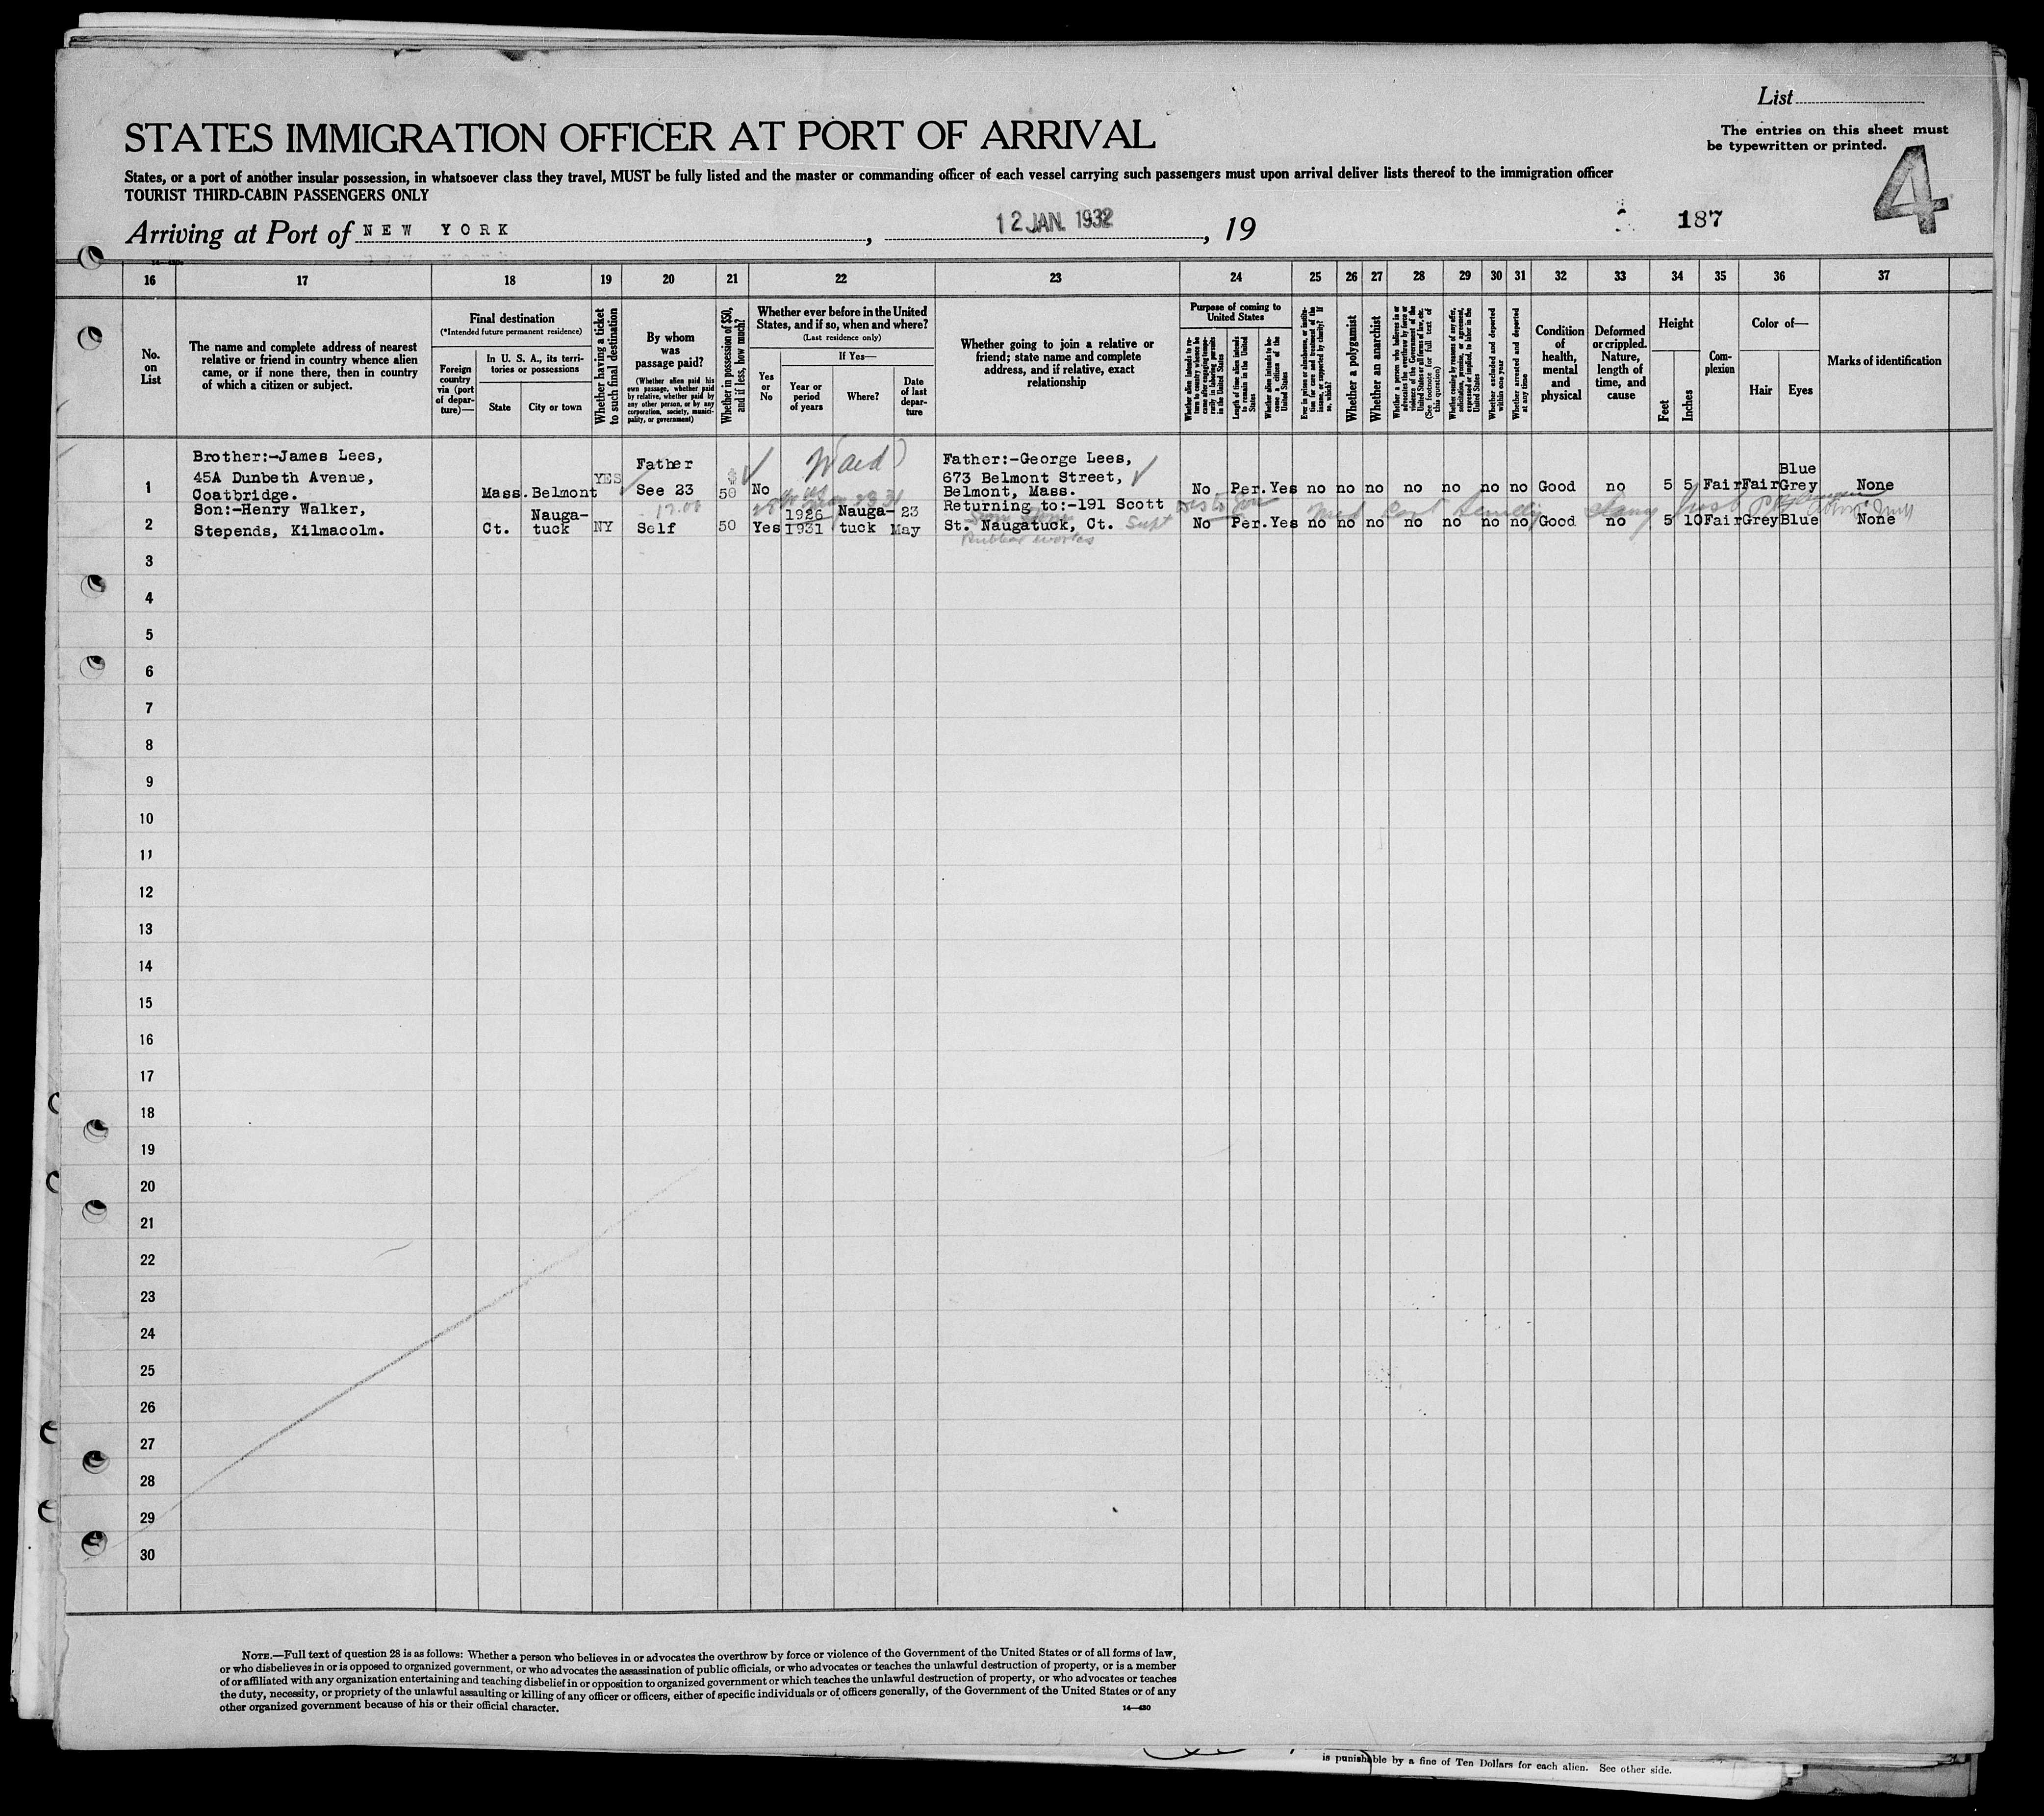 List
STATES IMMIGRATION OFFICER AT PORT OF ARRIVAL
The entries on this sheet must
be typewritten or printed.
States, or a port of another insular possession, in whatsoever class they travel, MUST be fully listed and the master or commanding officer of each vessel carrying such passengers must upon arrival deliver lists thereof to the immigration officer
TOURIST THIRD-CABIN PASSENGERS ONLY
4
Arriving at Port of NEW YORK, 12 JAN. 1932, 19
187
16 17 18 19 20 21 22 23 24 25 26 27 28 29 30 31 32 33 34 35 36 37
No. on List
The name and complete address of nearest
relative or friend in country whence alien
came, or if none there, then in country
of which a citizen or subject.
Final destination
(*Intended future permanent residence)
Foreign country via (port of departure)—
In U. S. A., its territories or possessions
State
City or town
Whether having a ticket to such final destination
By whom was passage paid?
(Whether alien paid his own passage, whether paid by relative, whether paid by any other person, or by any corporation, society, municipality, or government)
Whether in possession of $50, and if less, how much?
Whether ever before in the United States, and if so, when and where?
(Last residence only)
Yes or No
If Yes—
Year or period of years
Where?
Date of last departure
Whether going to join a relative or
friend; state name and complete
address, and if relative, exact
relationship
Purpose of coming to United States
Whether alien intends to return to country whence he came after engaging temporarily in laboring pursuits in the United States
Length of time alien intends to remain in the United States
Whether alien intends to become a citizen of the United States
Ever in prison or almshouse, or institution for care and treatment of the insane, or supported by charity? If so, which?
Whether a polygamist
Whether an anarchist
Whether a person who believes in or advocates the overthrow by force or violence of the Government of the United States or all forms of law, etc. (See footnote for full text of this question)
Whether coming by reasons of any offer, solicitation, promise, or agreement, expressed or implied, to labor in the United States
Whether excluded and deported within one year
Whether arrested and deported at any time
Condition of health, mental and physical
Deformed or crippled. Nature, length of time, and cause
Height
Feet
Inches
Complexion
Color of—
Hair
Eyes
Marks of identification
1 Brother:-James Lees,
45A Dunbeth Avenue,
Coatbridge.
Mass. Belmont YES Father
See 23 $ 50 No
Father:-George Lees,
673 Belmont Street,
Belmont, Mass.
No Per. Yes no no no no no no no Good no 5 5 Fair Fair Blue
Grey None
2 Son:-Henry Walker,
Stepends, Kilmacolm.
Ct. Nauga-
tuck NY Self 50 Yes 1926
1931 Nauga-
tuck 23
May
Returning to:-191 Scott
St. Naugatuck, Ct. Supt
Rubber works
No Per. Yes no no no no no no no Good no 5 10 Fair Grey Blue None
3
4
5
6
7
8
9
10
11
12
13
14
15
16
17
18
19
20
21
22
23
24
25
26
27
28
29
30
NOTE.—Full text of question 28 is as follows: Whether a person who believes in or advocates the overthrow by force or violence of the Government of the United States or of all forms of law,
or who disbelieves in or is opposed to organized government, or who advocates the assassination of public officials, or who advocates or teaches the unlawful destruction of property, or is a member
of or affiliated with any organization entertaining and teaching disbelief in or opposition to organized government or which teaches the unlawful destruction of property, or who advocates or teaches
the duty, necessity, or propriety of the unlawful assaulting or killing of any officer or officers, either of specific individuals or of officers generally, of the Government of the United States or of any
other organized government because of his or their official character.
14—430
is punishable by a fine of Ten Dollars for each alien. See other side.